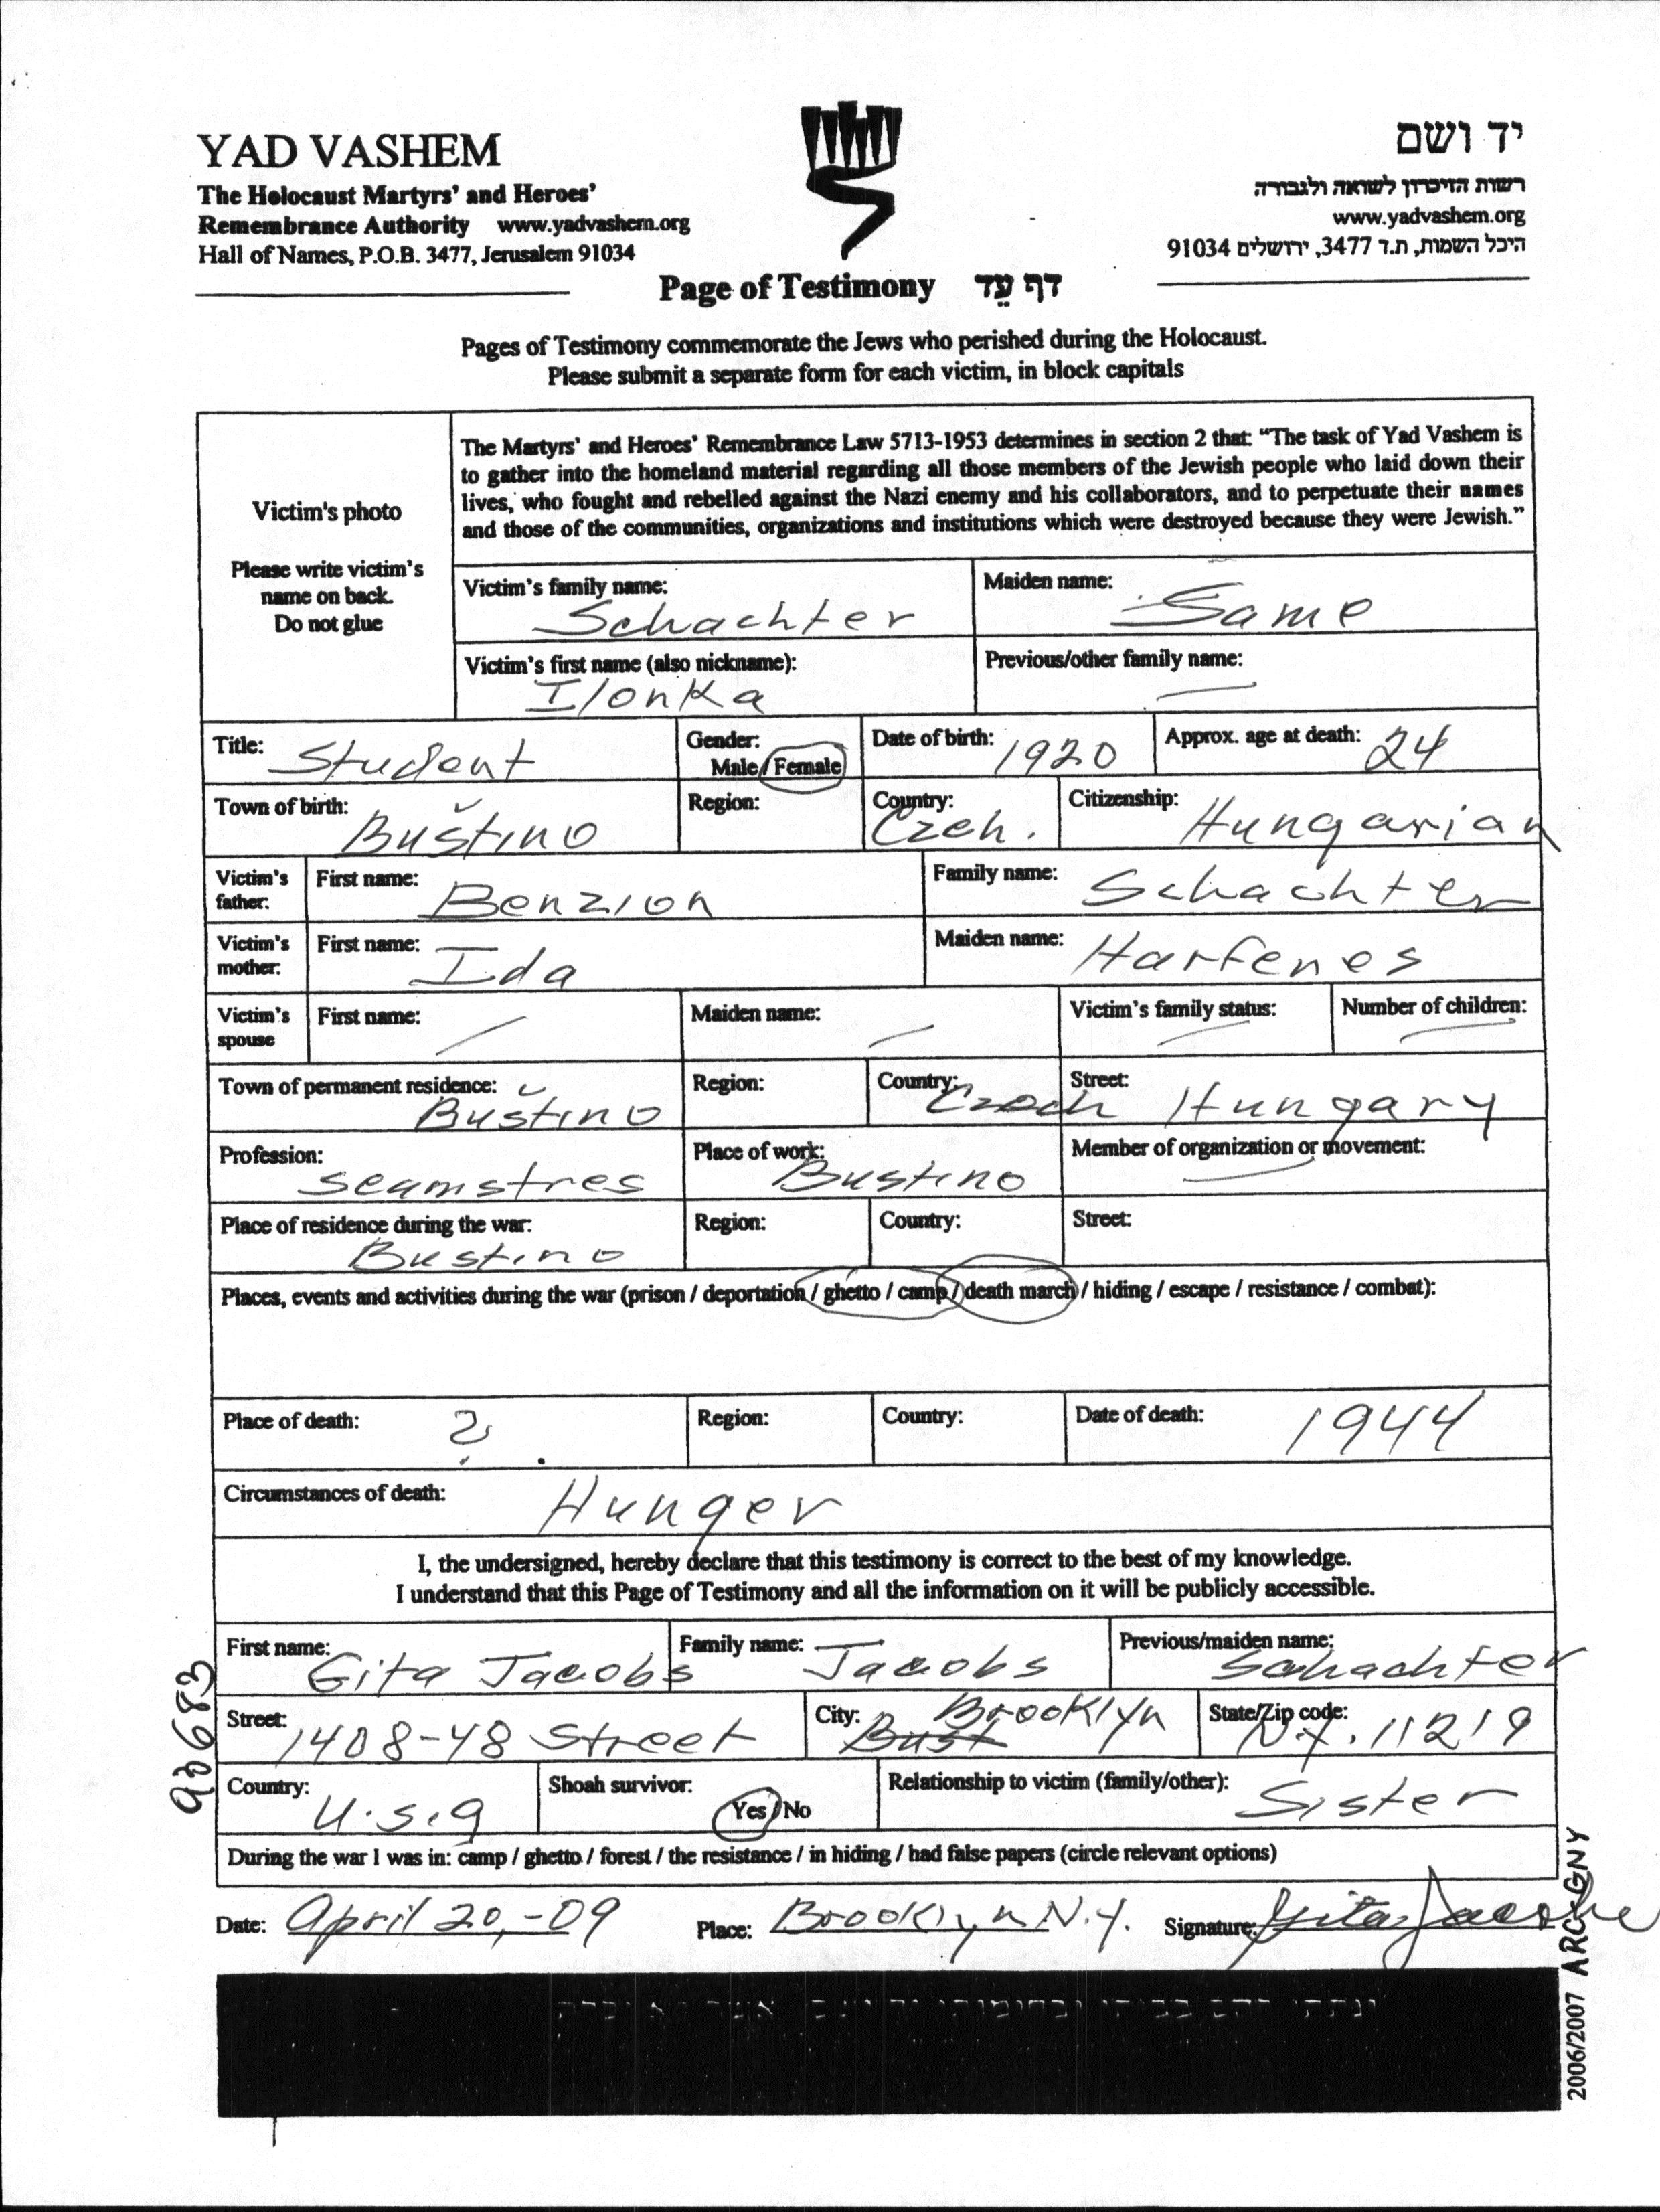 YAD VASHEM
The Holocaust Martyrs' and Heroes'
Remembrance Authority www.yadvashem.org
Hall of Names, P.O.B. 3477, Jerusalem 91034
יד ושם
רשות הזיכרון לשואה ולגבורה
www.yadvashem.org
היכל השמות, ת.ד 3477, ירושלים 91034
Page of Testimony דף עֵד
Pages of Testimony commemorate the Jews who perished during the Holocaust.
Please submit a separate form for each victim, in block capitals
Victim's photo
Please write victim's
name on back.
Do not glue
The Martyrs' and Heroes' Remembrance Law 5713-1953 determines in section 2 that: "The task of Yad Vashem is
to gather into the homeland material regarding all those members of the Jewish people who laid down their
lives, who fought and rebelled against the Nazi enemy and his collaborators, and to perpetuate their names
and those of the communities, organizations and institutions which were destroyed because they were Jewish."
Victim's family name: Schachter
Maiden name: Same
Victim's first name (also nickname): Ilonka
Previous/other family name: —
Title: Student
Gender: Male / Female
Date of birth: 1920
Approx. age at death: 24
Town of birth: Buština
Region:
Country: Czeh.
Citizenship: Hungarian
Victim's father: First name: Benzion
Family name: Schachter
Victim's mother: First name: Ida
Maiden name: Harfenes
Victim's spouse First name: —
Maiden name: —
Victim's family status: —
Number of children: —
Town of permanent residence: Buštino
Region:
Country: Czech
Street: Hungary
Profession: seamstres
Place of work: Bustino
Member of organization or movement: —
Place of residence during the war: Bustino
Region:
Country:
Street:
Places, events and activities during the war (prison / deportation / ghetto / camp / death march / hiding / escape / resistance / combat):
Place of death: ?
Region:
Country:
Date of death: 1944
Circumstances of death: Hunger
I, the undersigned, hereby declare that this testimony is correct to the best of my knowledge.
I understand that this Page of Testimony and all the information on it will be publicly accessible.
First name: Gita Jacobs
Family name: Jacobs
Previous/maiden name: Schachter
Street: 1408-48 Street
City: Bust Brooklyn
State/Zip code: N.Y. 11219
Country: U.S.a
Shoah survivor: Yes / No
Relationship to victim (family/other): Sister
During the war I was in: camp / ghetto / forest / the resistance / in hiding / had false papers (circle relevant options)
Date: April 20,-09
Place: Brooklyn N.Y.
Signature: Gita Jacobs
2006/2007 ARCGNY